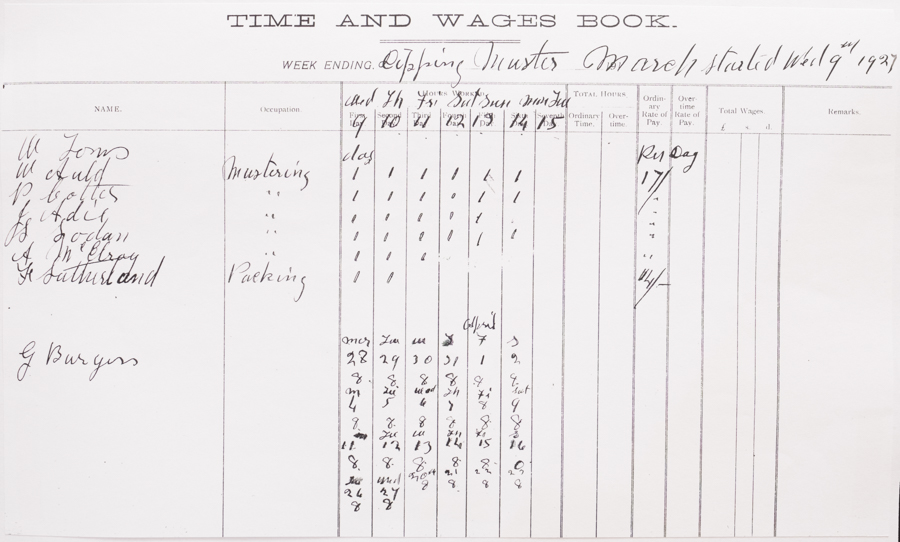 TIME AND WAGES BOOK.
WEEK ENDING. Dipping Muster March started Wed 9th 1927
NAME. Occupation. HOURS WORKED. TOTAL HOURS. Ordinary Rate of Pay. Overtime Rate of Pay. Total Wages. Remarks.
Wed Th Fri Sat Sun Mon Tue
First Day. Second Day. Third Day. Day. Day. Sixth Day. Seventh Day. Ordinary Time. Overtime. £ s. d.
9 10 11 12 13 14 15
W day Per Day
W Auld Mustering 1 1 1 1 1 1 17/-
P Cotter " 1 1 1 1 1 1 "
J Adie " 1 1 1 1 1 "
" 1 1 1 1 1 1 "
A McElroy " 1 1 1 "
F Sutherland Packing 1 1 14/-
April
mon Tu w T F S
G Burgess 28 29 30 31 1 2
8 8 8 8 8 9
m Tu wed Th Fri Sat
4 5 6 7 8 9
8 8 8 8 8 8
m Tu w Th Fr S
11 12 13 14 15 16
8 8 8 8 8
wed 21 22 23
26 27 8 8 8 8
8 8